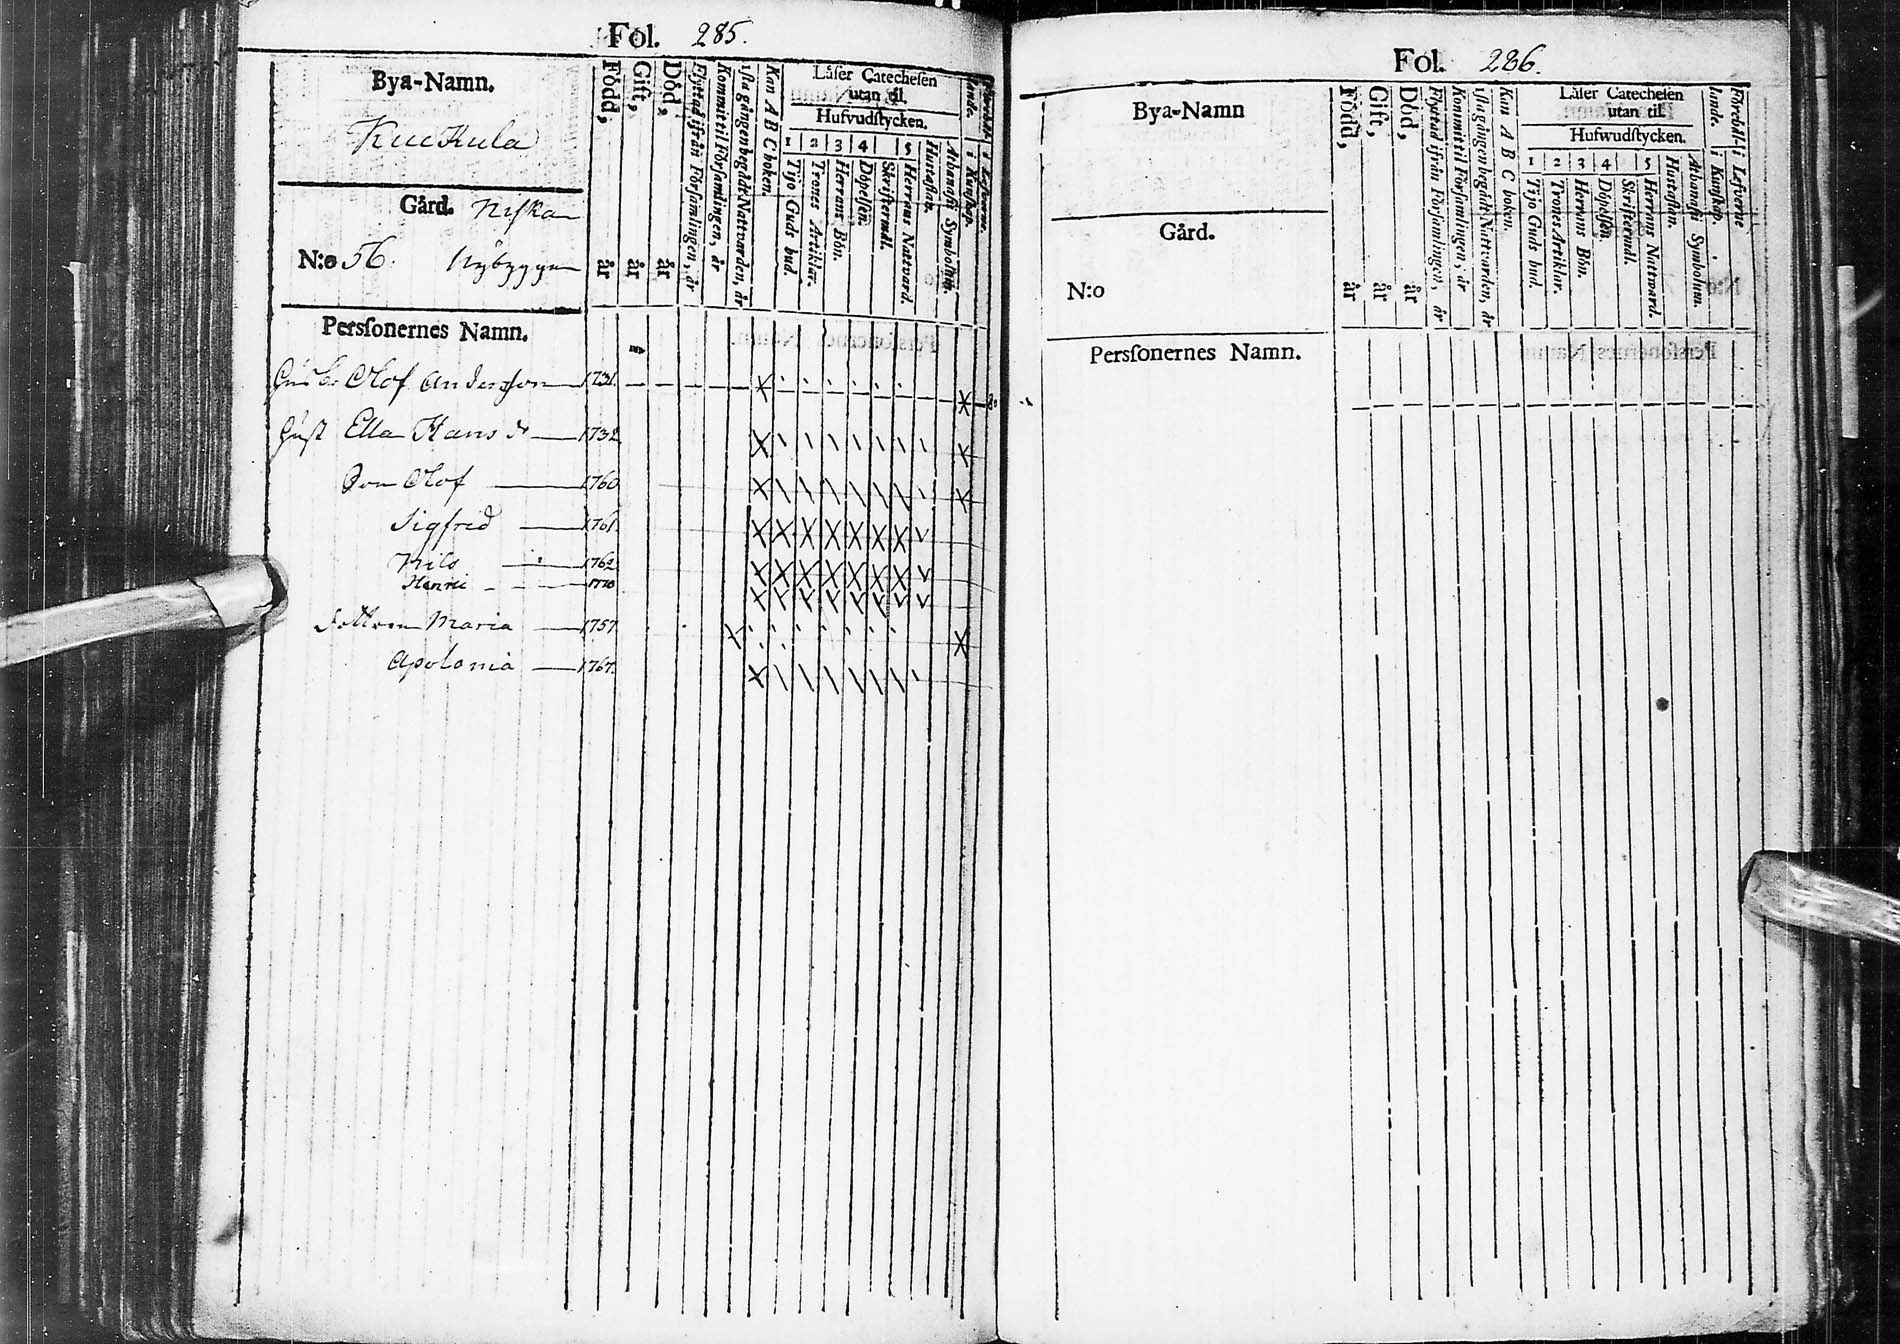 Fol. 285.
Bya-Namn.
Kuckula
Gård. Niska
N:o 56. Nybygge
Född, år
Gift, år
Död, år
Flyttad ifrån Församlingen, år
Kommit til Församlingen, år
1sta gången begådt Nattvarden, år
Kan A B C boken.
Läser Catechesen
utan til.
Hufvudstycken.
1 2 3 4 5
Tijo Guds bud.
Trones Artiklar.
Herrans Bön.
Döpelsen.
Skriftermål.
Herrans Nattvard.
Hustaflan.
Athanasii Symbolum.
i Kunskap.
i Lefverne.
Personernes Namn.
Olof Andersson 1731.
Hust Ella Hans dr 1732
Son Olof 1760
Sigfrid 1761.
Nils 1762
Henric 1770
Dottren Maria 1757
Apolonia 1767.
Fol. 286.
Bya-Namn
Gård.
N:o
Född, år
Gift, år
Död, år
Flyttad ifrån Församlingen, år
Kommit til Församlingen, år
1sta gången begådt Nattvarden, år
Kan A B C boken.
Läser Catechesen
utan til.
Hufwudstycken.
1 2 3 4 5
Tijo Guds bud.
Trones Artiklar.
Herrans Bön.
Döpelsen.
Skriftermål.
Herrans Nattward.
Hustaflan.
Athanasii Symbolum.
i Kunskap.
i Lefverne
Personernes Namn.